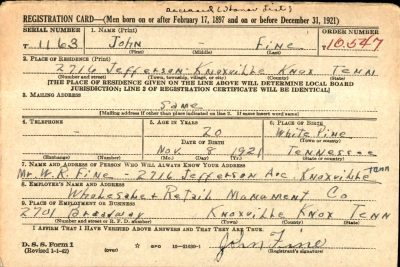 REGISTRATION CARD—(Men born on or after February 17, 1897 and on or before December 31, 1921)
SERIAL NUMBER 1. NAME (Print) ORDER NUMBER
T 1163 John Fine 10,547
(First) (Middle) (Last)
2. PLACE OF RESIDENCE (Print)
2716 Jefferson Knoxville Knox Tenn
(Number and street) (Town, township, village, or city) (County) (State)
[THE PLACE OF RESIDENCE GIVEN ON THE LINE ABOVE WILL DETERMINE LOCAL BOARD
JURISDICTION; LINE 2 OF REGISTRATION CERTIFICATE WILL BE IDENTICAL]
3. MAILING ADDRESS
Same
[Mailing address if other than place indicated on line 2. If same insert word same]
4. TELEPHONE 5. AGE IN YEARS 6. PLACE OF BIRTH
20 White Pine
DATE OF BIRTH (Town or county)
Nov 8 1921 Tennessee
(Exchange) (Number) (Mo.) (Day) (Yr.) (State or country)
7. NAME AND ADDRESS OF PERSON WHO WILL ALWAYS KNOW YOUR ADDRESS
Tenn
Mr. W.R. Fine - 2716 Jefferson Ave Knoxville
8. EMPLOYER'S NAME AND ADDRESS
Wholesale & Retail Monument Co
9. PLACE OF EMPLOYMENT OR BUSINESS
2701 Broadway Knoxville Knox Tenn
(Number and street or R. F. D. number) (Town) (County) (State)
I AFFIRM THAT I HAVE VERIFIED ABOVE ANSWERS AND THAT THEY ARE TRUE.
D. S. S. Form 1
(Revised 1-1-42) (over) GPO John Fine